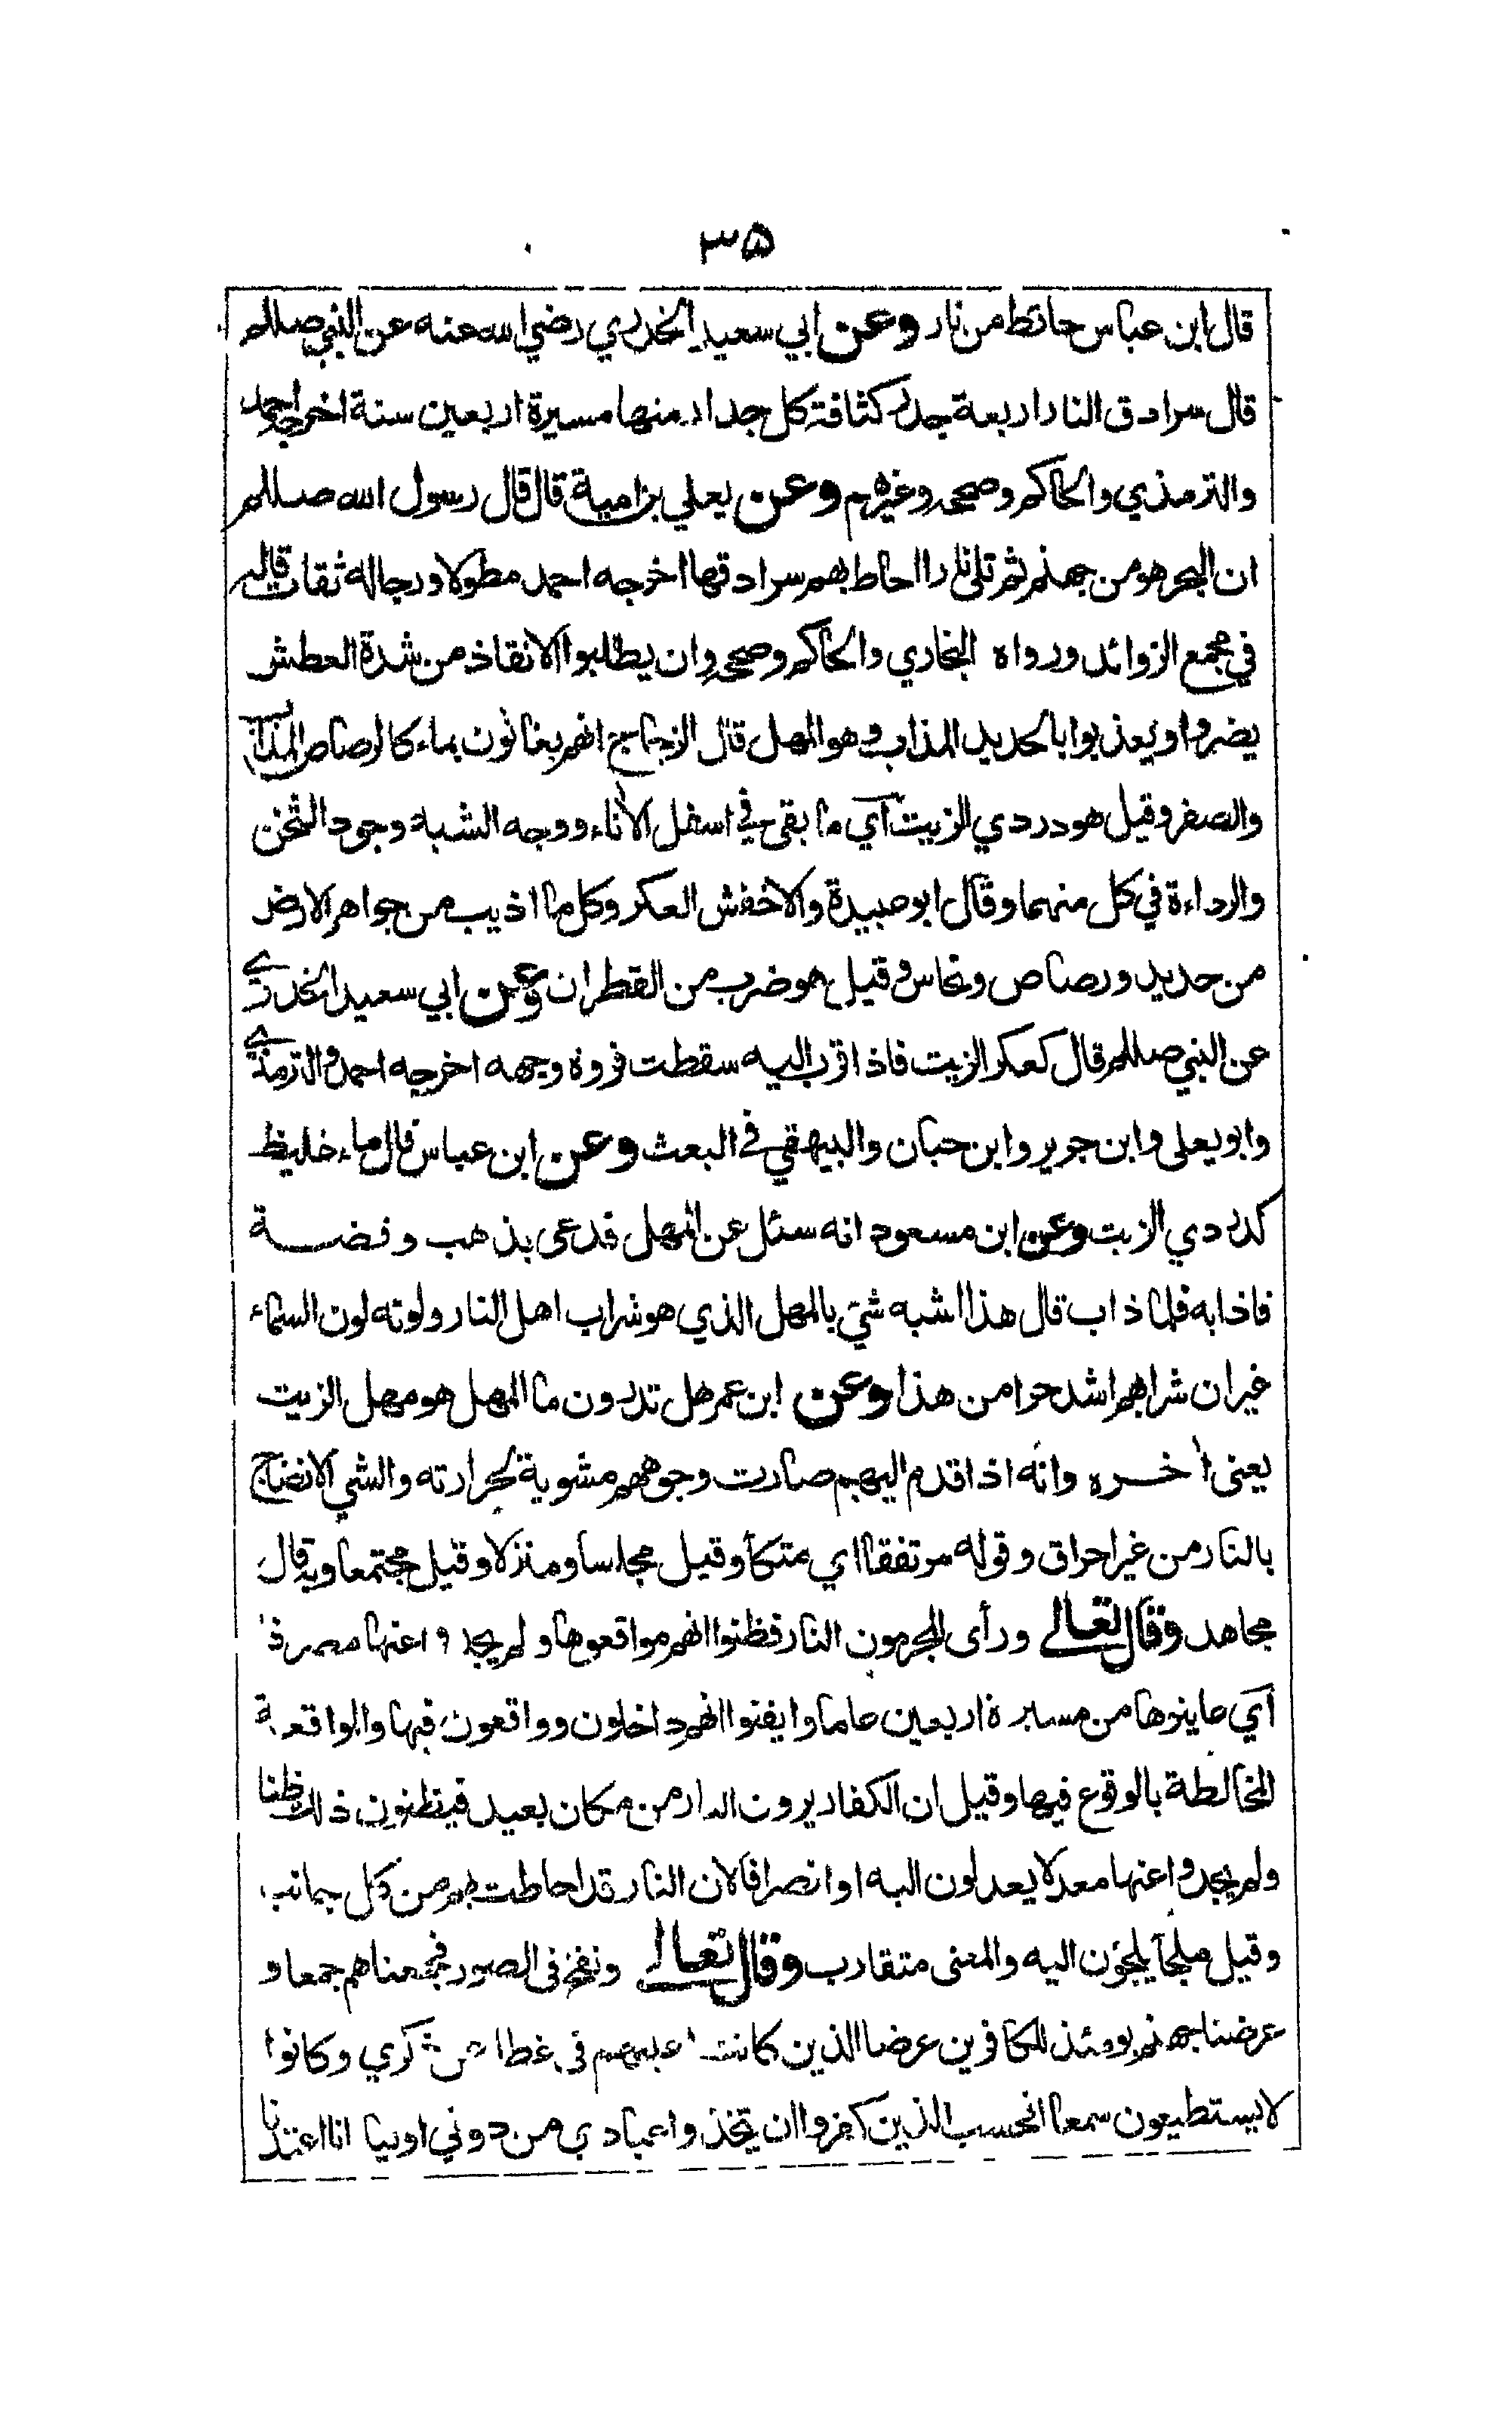 ٣٥
قال ابن عباس حائط من نار وعن ابي سعيد الخدري رضي الله عنه عن النبي صللم
قال سرادق النار اربعة جدر كثافة كل جدار منها مسيرة اربعين سنة اخرجه احمد
والترمذي والحاكم وصححه وغيرهم وعن يعلي بن امية قال قال رسول الله صللم
ان البحر هو من جهنم ثم تلى نارا احاط بهم سرادقها اخرجه احمد مطولا ورجاله ثقات قاله
في مجمع الزوائد ورواه البخاري والحاكم وصححه وان يطلبوا الانقاذ من شدة العطش
يضروا ويعذبوا بالحديد المذاب وهو المهل قال الزجاج انهم يغاثون بماء كالرصاص المذاب
والصفر وقيل هو دردي الزيت اي ما بقى في اسفل الاناء ووجه الشبه وجود الثخن
والرداءة في كل منهما وقال ابو عبيدة والاخفش العكر وكل ما اذيب من جواهر الارض
من حديد ورصاص ونحاس وقيل هو ضرب من القطران وعن ابي سعيد الخدري
عن النبي صللم قال كعكر الزيت فاذا قرب اليه سقطت فروة وجهه اخرجه احمد والترمذي
وابو يعلى وابن جرير وابن حبان والبيهقي في البعث وعن ابن عباس قال ماء غليظ
كدردي الزيت وعن ابن مسعود انه سئل عن المهل فدعى بذهب وفضة
فاذابه فلما ذاب قال هذا اشبه شئ بالمهل الذي هو شراب اهل النار ولونه لون السماء
غير ان شرابهم اشد حرا من هذا وعن ابن عمر هل تدرون ما المهل هو مهل الزيت
يعنى اخره وانه اذا قدم اليهم صارت وجوههم مشوية لحرارته والشي الانضاج
بالنار من غير احراق وقوله مرتفقا اي متكأ وقيل مجلسا ومنزلا وقيل مجتمعا وبه قال
مجاهد وقال تعالى ورأى المجرمون النار فظنوا انهم مواقعوها ولم يجدوا عنها مصرفا
اي عاينوها من مسيرة اربعين عاما وايقنوا انهم داخلون وواقعون فيها والواقعة
المخالطة بالوقوع فيها وقيل ان الكفار يرون النار من مكان بعيد فيظنون ذلك ظنا
ولم يجدوا عنها معدلا يعدلون اليه او انصرافا لان النار قد احاطت بهم من كل جانب
وقيل ملجأ يلجؤن اليه والمعنى متقارب وقال تعالى ونفخ في الصور فجمعناهم جمعا و
عرضنا جهنم يومئذ للكافرين عرضا الذين كانت اعينهم في غطا عن ذكري وكانوا
لا يستطيعون سمعا افحسب الذين كفروا ان يتخذوا عبادي من دوني اوليا انا اعتدنا